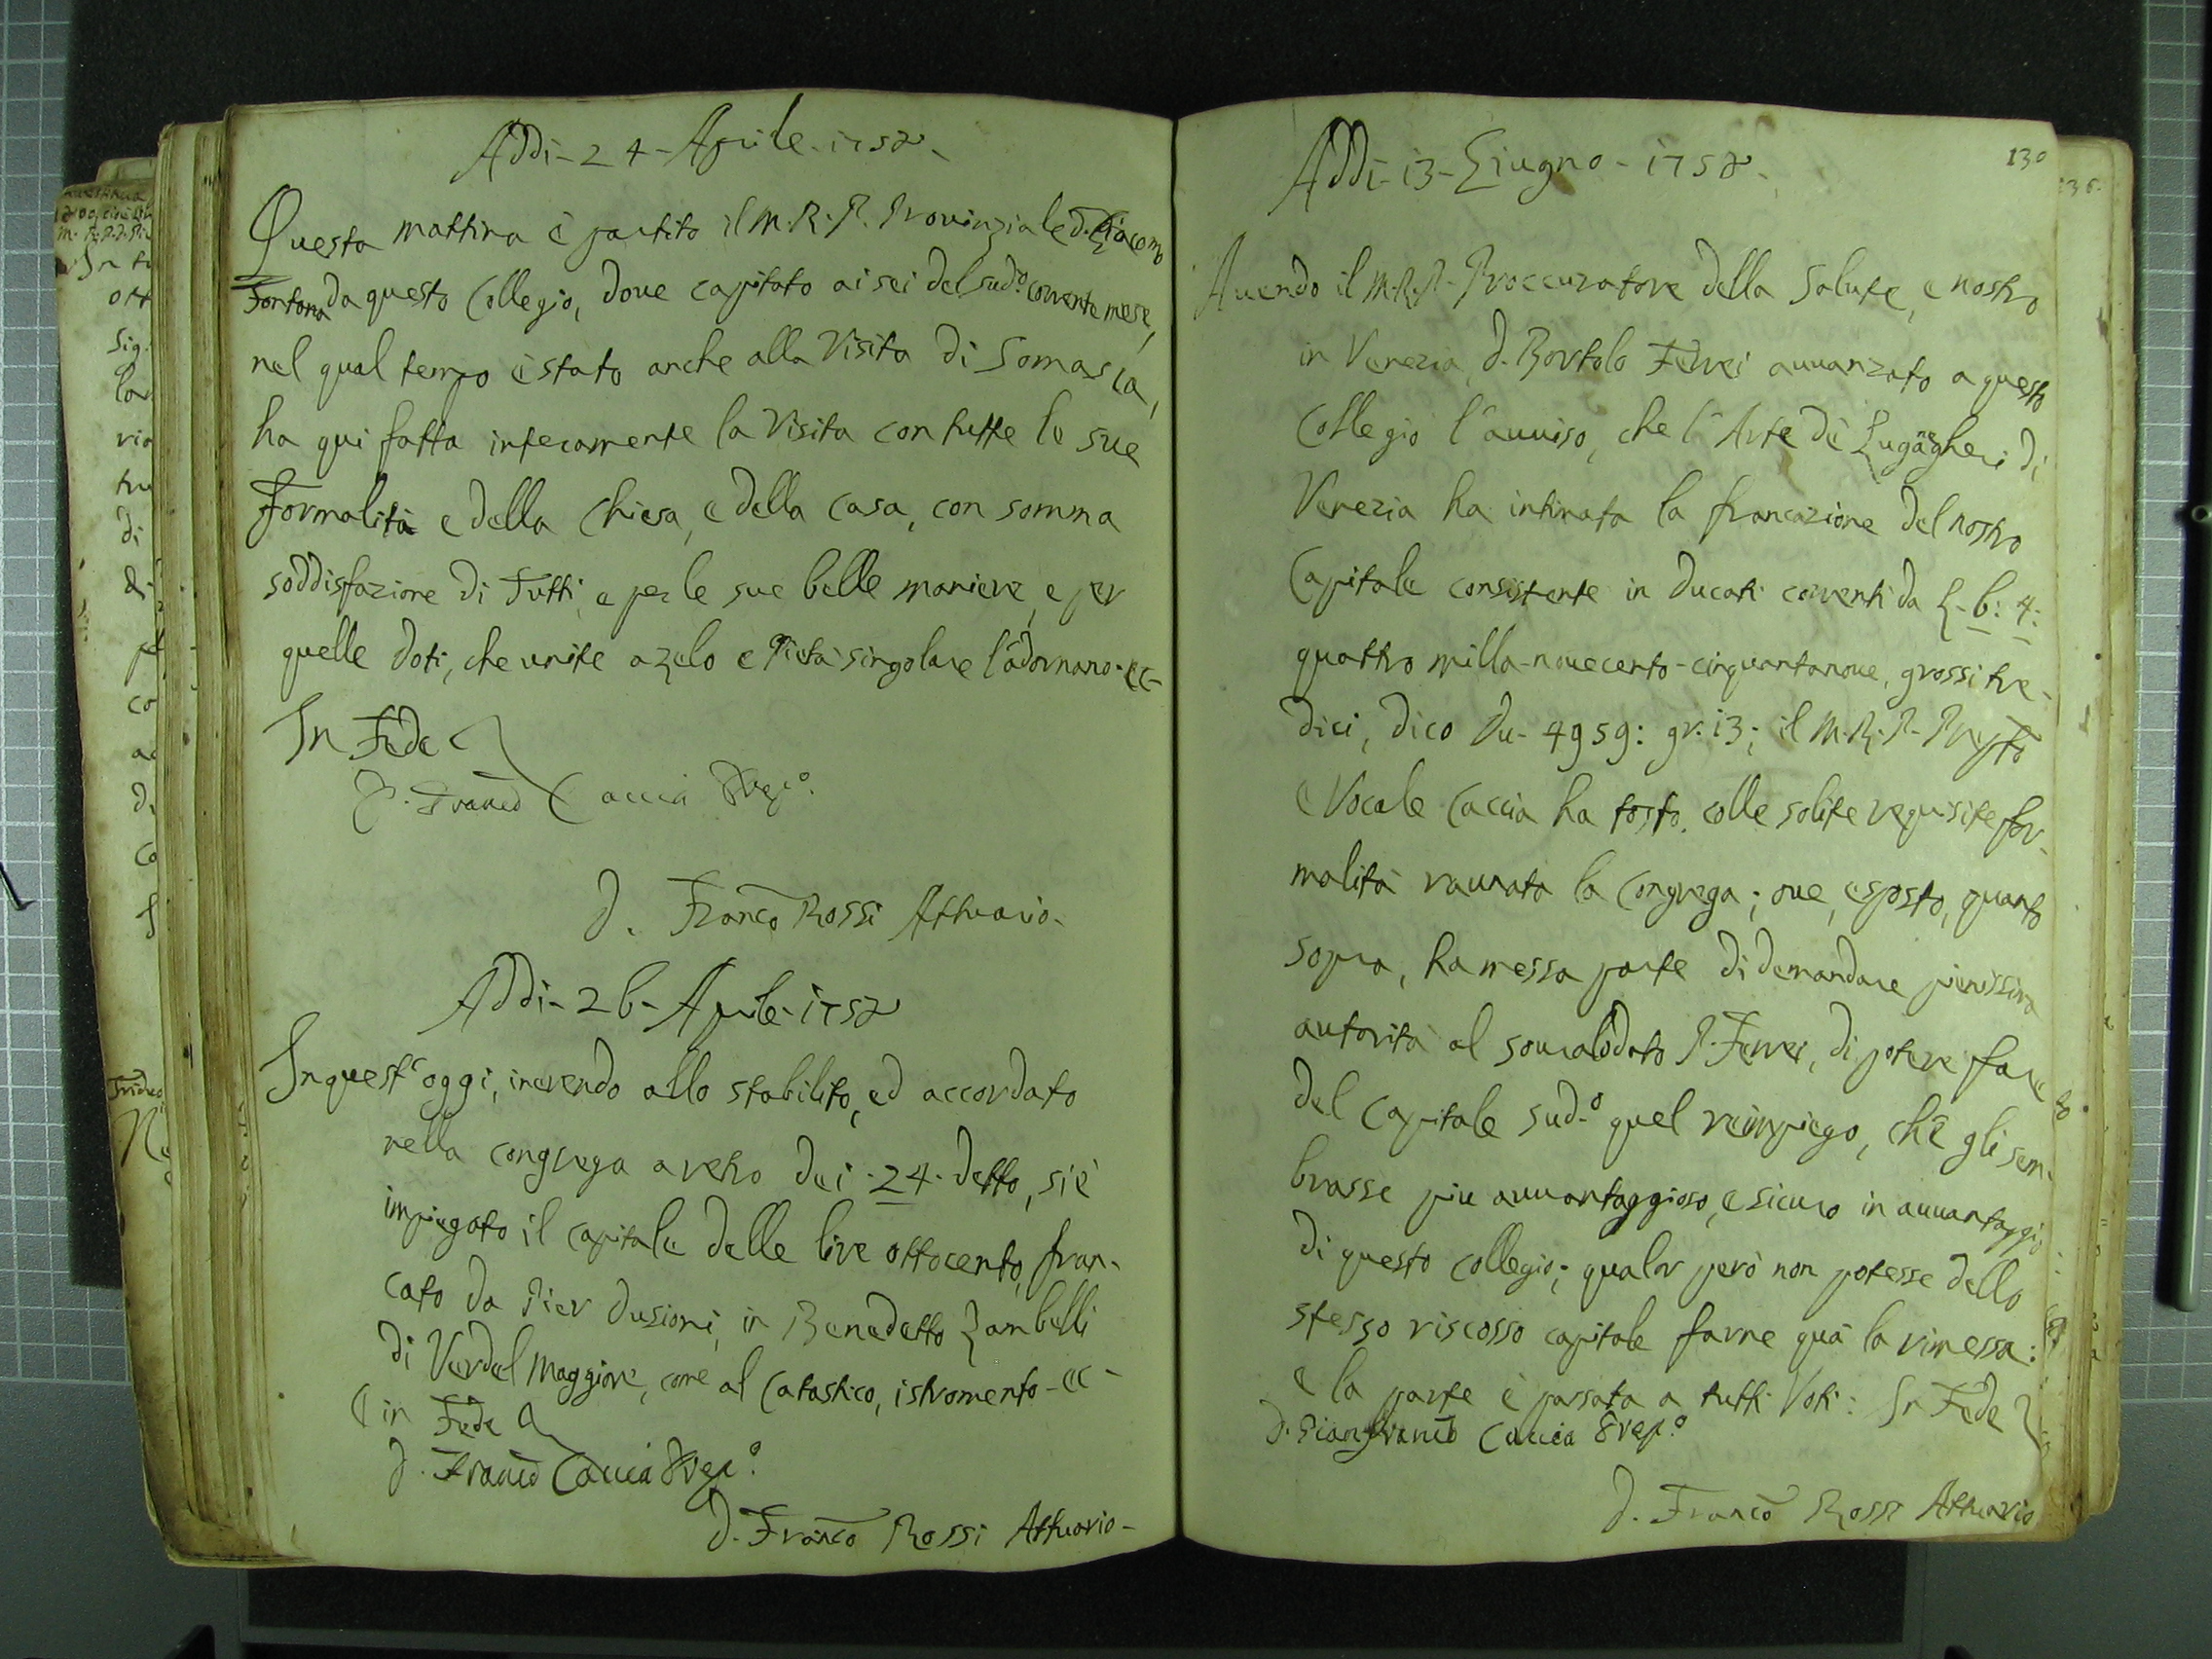 Addi - 24 - Aprile - 1752 -
Questa mattina è partito il M. R. P. Provinziale d. Giacomo
Fontana da questo Collegio, dove capitato ai sei del sud.o corrente mese,
nel qual tempo è stato anche alla Visita di Somasca,
ha qui fatta interamente la Visita con tutte le sue
formalità e della Chiesa, e della Casa, con somma
soddisfazione di Tutti, e per le sue belle maniere, e per
quelle doti, che unite a zelo e Pietà singolare l'adornano - ec -
In Fede
D. Franco Caccia Prep.o
D. Franco Rossi Attuario -
Addi - 26 - Aprile - 1752
In quest'oggi, inerendo allo stabilito, ed accordato
nella congrega a retro dei - 24 - detto, si è
impiegato il capitale delle lire ottocento, fran-
cato da Pier Dusioni, in Benedetto Zambelli
di Verdel Maggiore, come al Catastico, istromento - ec -
E in Fede
D. Franco Caccia Prep.o
D. Franco Rossi Attuario -
130
Addi - 13 - Giugno - 1752 -
Avendo il M. R. P. Proccuratore della Salute, e nostro
in Venezia, D. Bortolo Ferrei avvanzato a questo
Collegio l'avviso, che l'Arte de' Luganegheri di
Venezia ha intimata la francazione del nostro
Capitale consistente in Ducati correnti da L. 6: 4:
quattro milla - novecento - cinquantanove, grossi tre-
dici, dico Du - 4959: gr. 13; il M. R. P. Prep.to
e Vocale Caccia ha tosto colle solite requisite for-
malità raunata la Congrega; ove, esposto, quanto
sopra, ha messa parte di demandare pienissima
autorità al sovralodato P. Ferrei, di potere fare
del Capitale sud.o quel reimpiego, che gli sem-
brasse più avvantaggioso, e sicuro in avvantaggio
di questo Collegio; qualor però non potesse dello
stesso riscosso capitale farne quà la rimessa:
e la parte è passata a tutti Voti: In Fede
D. Gianfranco Caccia Prep.o
D. Franco Rossi Attuario